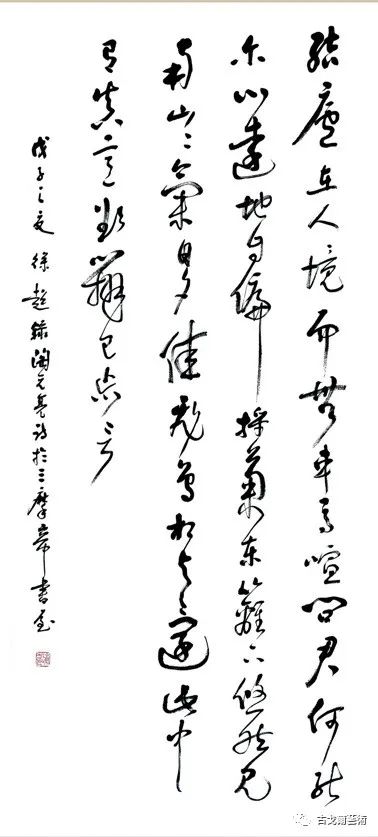 結廬在人境而無車馬喧問君何能
尔心遠地自偏採菊東籬下悠然見
南山〻氣日夕佳飛鳥相与還此中
有真意欲辨已忘言
戊子之夏 徐超錄陶元亮詩於三摩帝書屋
古戈爾藝術